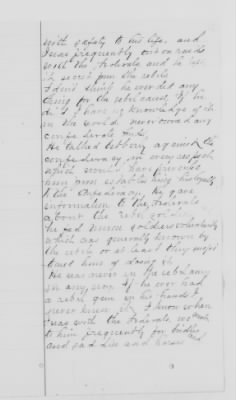 with safety to his life, and
I was frequently out on raids
with the Federals and he kept
it secret from the rebels
I dont think he ever did any
thing for the rebel cause, if he
did I have no knowledge of it
He would never own any
confederate
He talked bitterly against the
confederacy in every respect
which would have
him from his loyalty
to the Confederacy. He gave
information to the Federals
about the rebel soldiers
he fed union soldiers voluntarily
which was generally known by
the rebels or at least they
him of doing it
He was never in the rebel army
in any way if he ever had
a rebel gun in his hands I
never knew it, I know when
I was with the Federals, we went
to him frequently for
and saddles and horses and